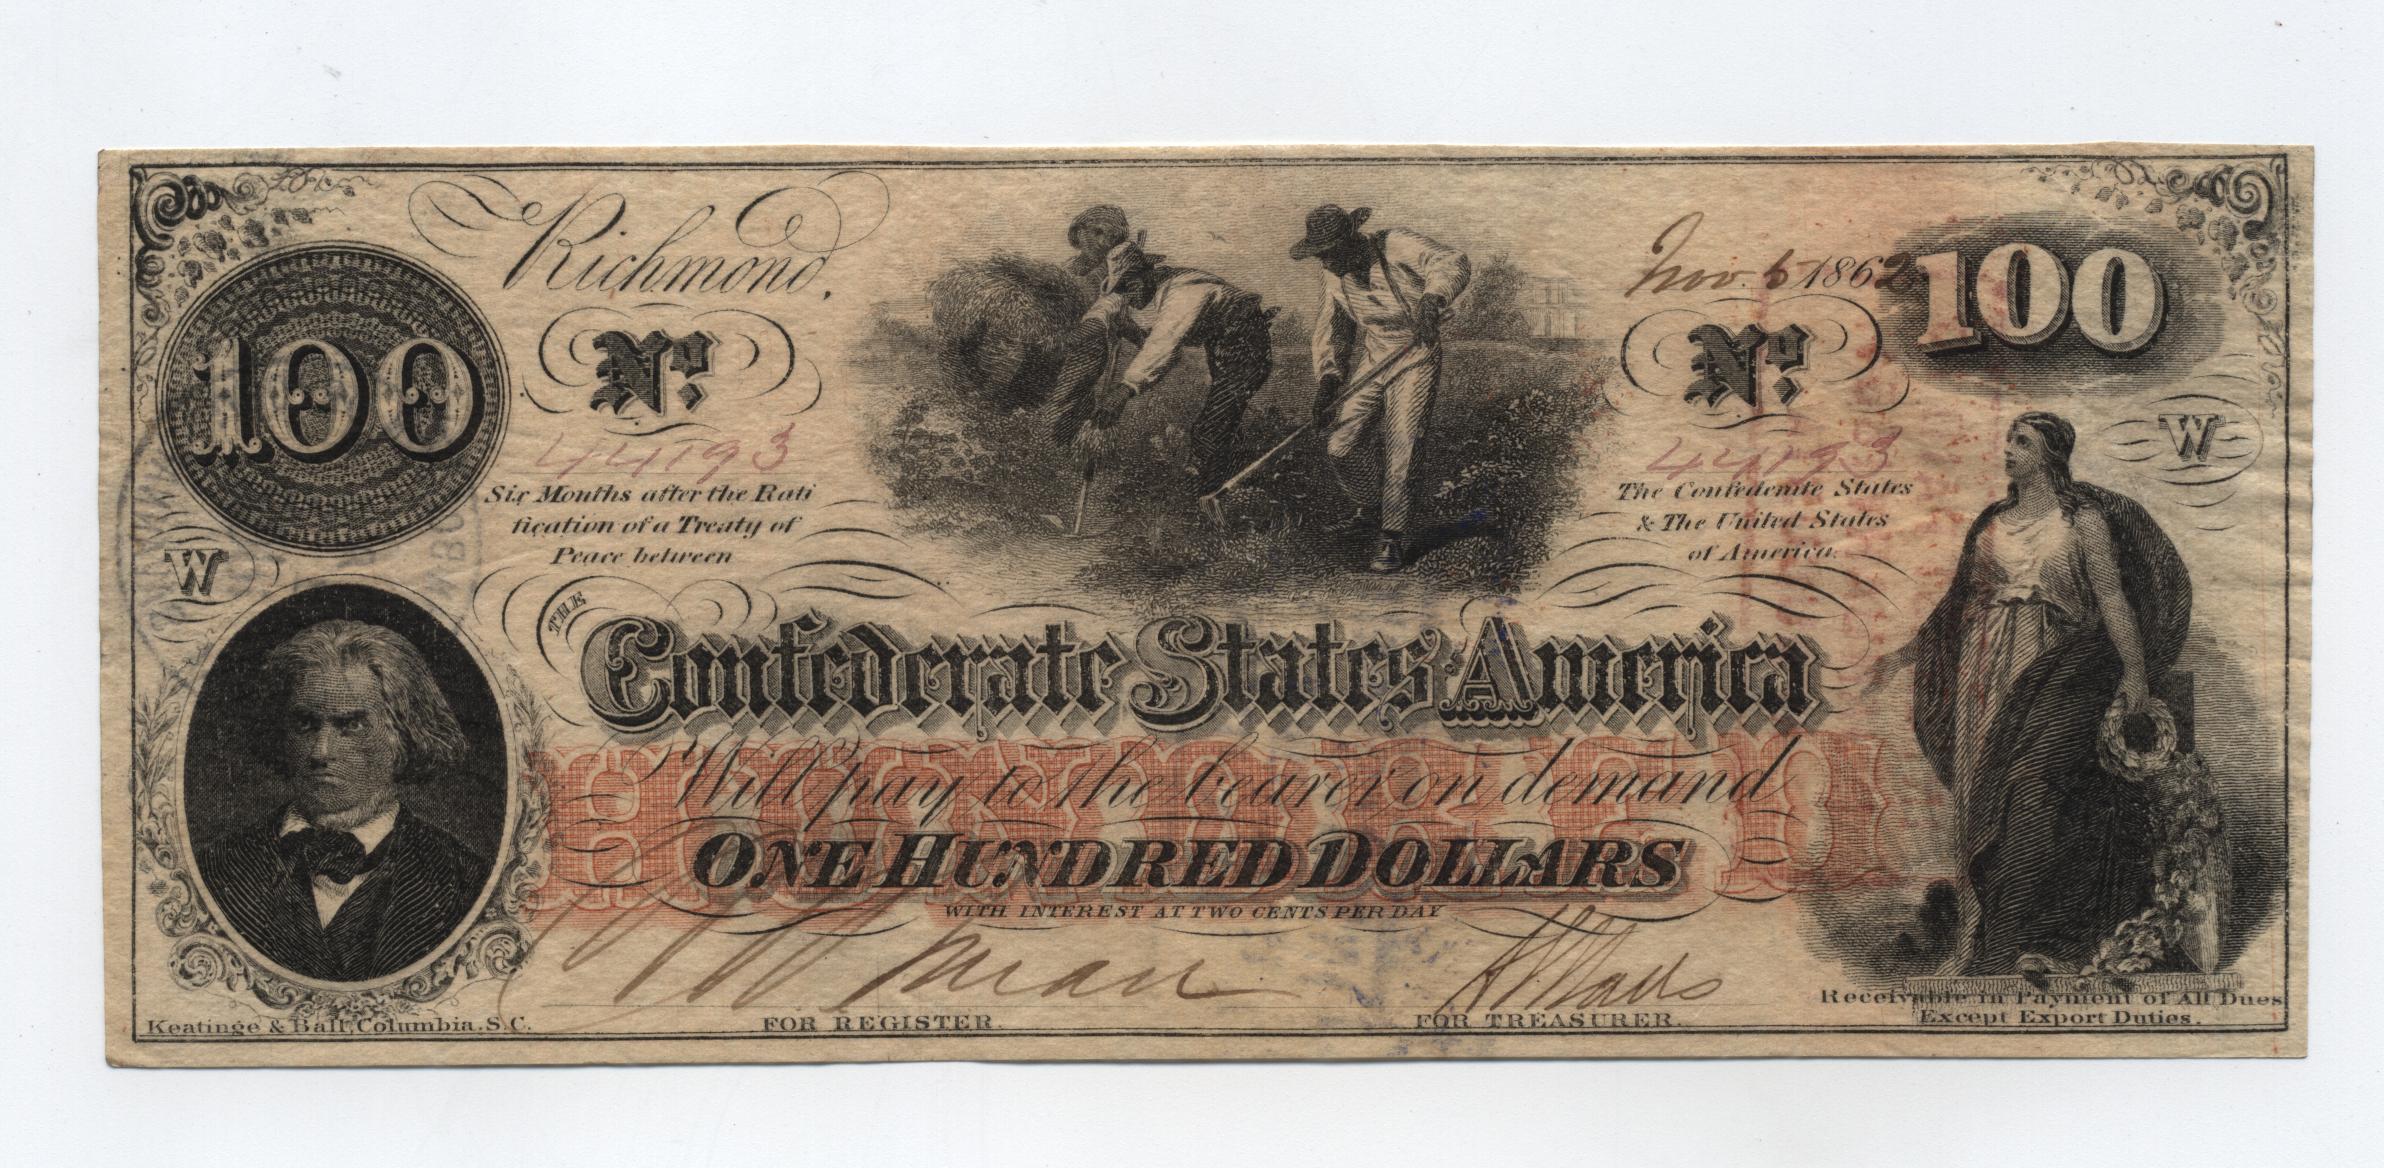 100
Richmond,
Nov. 6 1862
100
No.
No.
44193
44193
Six Months after the Rati
fication of a Treaty of
Peace between
The Confederate States
& The United States
of America.
W
W
THE
Confederate States America
HUNDRED
Will pay to the bearer on demand
ONE HUNDRED DOLLARS
WITH INTEREST AT TWO CENTS PER DAY
Keatinge & Ball, Columbia, S.C.
FOR REGISTER.
FOR TREASURER.
Receivable in Payment of All Dues
Except Export Duties.